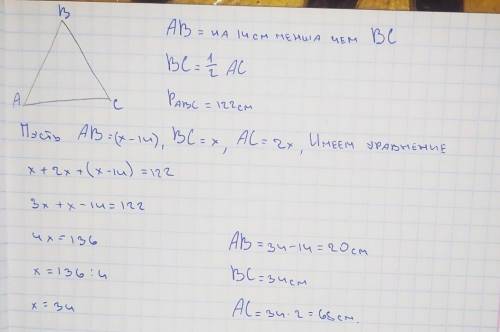 B
AB = на 14 см менша чем BC
BC = 1/2 AC
A
C
P_ABC = 122 см
Пусть AB = (x - 14), BC = x, AC = 2x, Имеем уравнение
x + 2x + (x - 14) = 122
3x + x - 14 = 122
4x = 136
AB = 34 - 14 = 20 см
x = 136 : 4
BC = 34 см
x = 34
AC = 34 · 2 = 68 см.